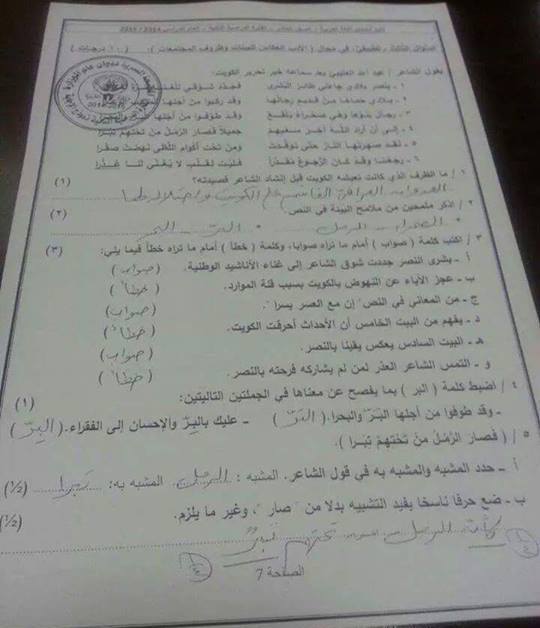 السؤال الثالث : تطبيقي: في مجال ( الأدب انعكاس للبيئات وظروف المجتمعات ) : ( ١٠ درجات )
يقول الشاعر / عبد الله العتيبي بعد سماعه خبر تحرير الكويت:
١ - بنصر بلادي جاءني طائر البشرى
٢ - بلادي حماها من قديم رجالها وقد ركبوا من أجلها
٣ - رجال بنوها وهي صحراء بلقع وقد طوفوا من أجلها
٤ - إلى أن أراد الله آخر سعيهم جميلاً فصار الرمل من تحتهم تبرا
٥ - لقد صهرتها النار حتى توقدت ومن تحت أكوام اللظى نهضت صقرا
٦ - رجعنا وقد كان الرجوع مقدرا فليت لقلب لا يغني لنا عذرا
١ / ما الظرف الذي كانت تعيشه الكويت قبل إنشاد الشاعر قصيدته؟ (١)
على الكويت واحتلالها
٢ / اذكر ملمحين من ملامح البيئة في النص. (٢)
* الصحراء - الرمل * البر - البحر
٣ / اكتب كلمة ( صواب ) أمام ما تراه صوابا، وكلمة ( خطأ ) أمام ما تراه خطأ فيما يلي: (٣)
أ - بشرى النصر جددت شوق الشاعر إلى غناء الأناشيد الوطنية. ( صواب )
ب - عجز الآباء عن النهوض بالكويت بسبب قلة الموارد. ( خطأ )
ج - من المعاني في النص " إن مع العسر يسرا ". ( صواب )
د - يفهم من البيت الخامس أن الأحداث أحرقت الكويت. ( خطأ )
هـ - البيت السادس يعكس يقينا بالنصر. ( صواب )
و - التمس الشاعر العذر لمن لم يشاركه فرحته بالنصر. ( خطأ )
٤ / اضبط كلمة ( البر ) بما يفصح عن معناها في الجملتين التاليتين: (١)
- وقد طوفوا من أجلها البر والبحرا. ( البَرّ ) - عليك بالبر والإحسان إلى الفقراء. ( البِرّ )
٥ / ( فصار الرمل من تحتهم تبرا ).
أ - حدد المشبه والمشبه به في قول الشاعر. المشبه : الرمل المشبه به: تبرا (½)
ب - ضع حرفا ناسخا يفيد التشبيه بدلا من " صار "، وغير ما يلزم. (½)
كأن الرمل من تحتهم تبرٌ
الصفحة 7